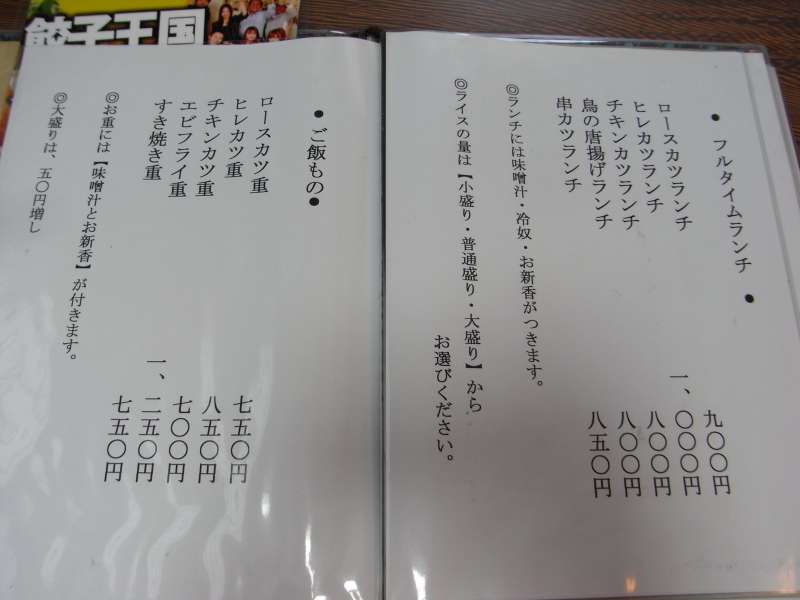 餃子王国
● フルタイムランチ ●
ロースカツランチ 九〇〇円
ヒレカツランチ 一、〇〇〇円
チキンカツランチ 八〇〇円
鳥の唐揚げランチ 八〇〇円
串カツランチ 八五〇円
◎ランチには味噌汁・冷奴・お新香がつきます。
◎ライスの量は【小盛り・普通盛り・大盛り】から
お選びください。
● ご飯もの●
ロースカツ重 七五〇円
ヒレカツ重 八五〇円
チキンカツ重 七〇〇円
エビフライ重 一、二五〇円
すき焼き重 七五〇円
◎お重には【味噌汁とお新香】が付きます。
◎大盛りは、五〇円増し